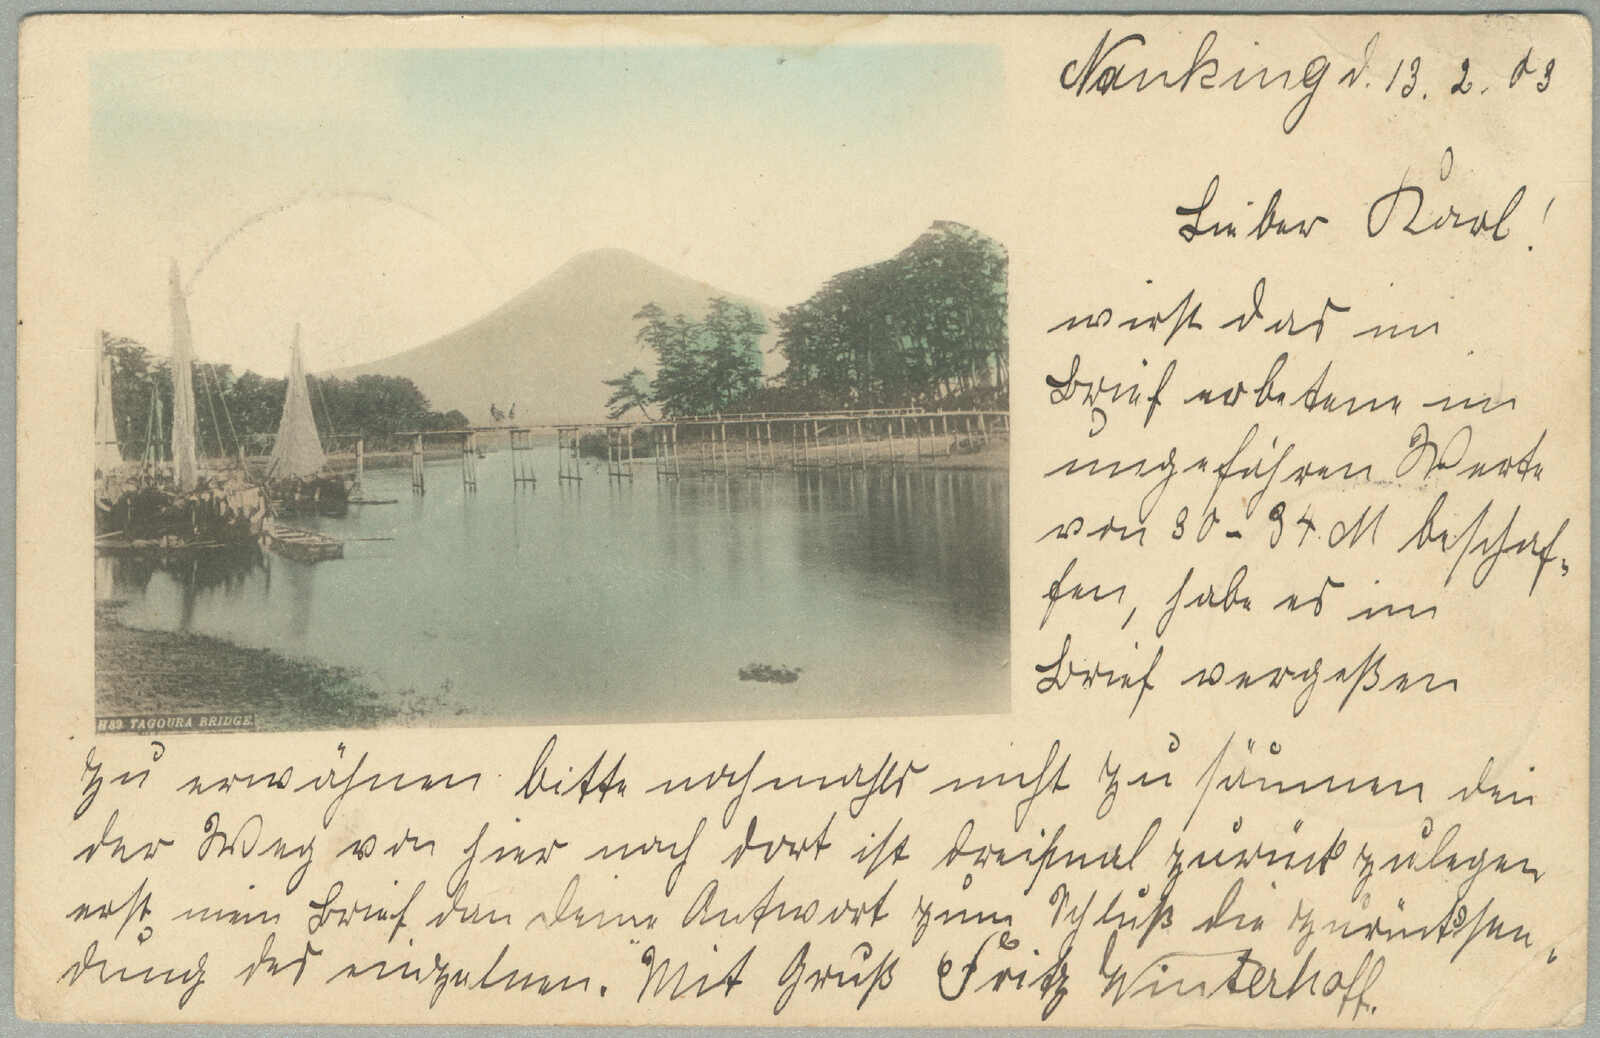 Nanking d. 13. 2. 03
Lieber Karl!
wirst das im
Brief erbetene im
ungefähren Werte
von 30-34 M beschaf-
fen, habe es im
Brief vergeßen
H89 TAGOURA BRIDGE.
zu erwähnen. bitte nochmahls nicht zu säumen den
der Weg von hier nach dort ist dreimal zurück zulegen
erst mein Brief dan deine Antwort zum Schluß die zurücksen-
dung des einzelnen. Mit Gruß Fritz Winterhoff.